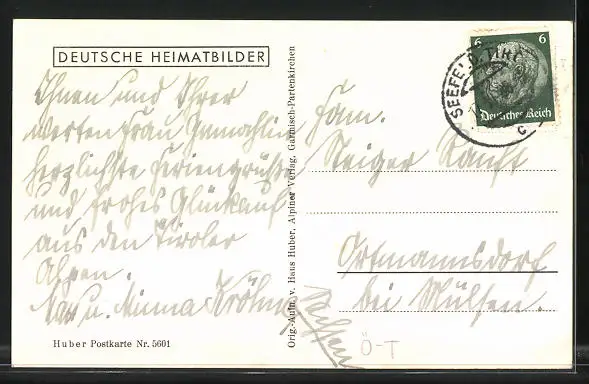 DEUTSCHE HEIMATBILDER
Ihnen und Ihrer
werten Frau Gemahlin
herzlichste Feriengrüße
und frohes Glückauf
aus den Tiroler
Alpen.
Max u. Minna
Huber Postkarte Nr. 5601
Orig.-Aufn. v. Hans Huber, Alpiner Verlag, Garmisch-Partenkirchen
6 6
Deutsches Reich
SEEFELD
c
Fam.
Steiger Ranft
Ortmannsdorf
bei Mülsen.
Sachsen
Ö-T